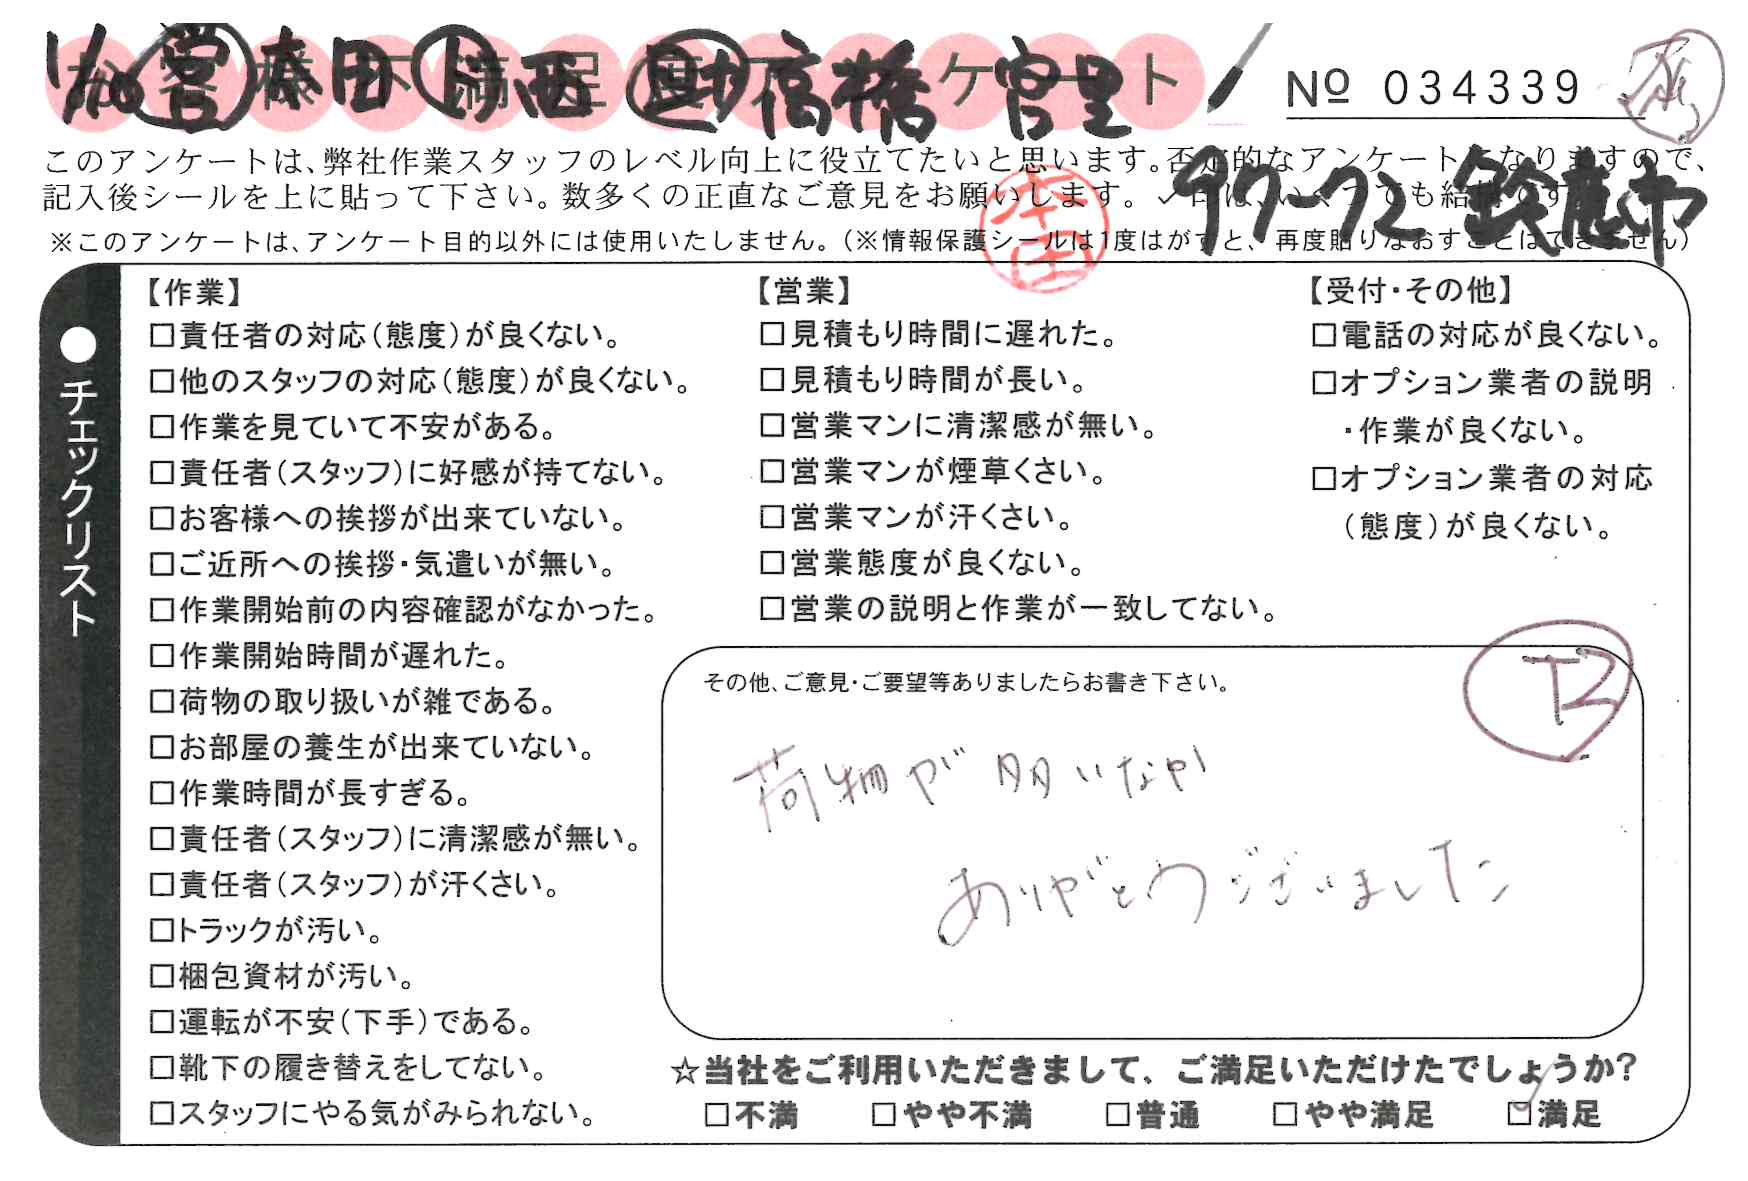 お客様不満足度アンケート
1/20 営 本田 ト 西 助 高橋 宮里
№ 034339
このアンケートは、弊社作業スタッフのレベル向上に役立てたいと思います。否定的なアンケートになりますので、
記入後シールを上に貼って下さい。数多くの正直なご意見をお願いします。✓印は、いくつでも結構です。
鈴鹿市
※このアンケートは、アンケート目的以外には使用いたしません。（※情報保護シールは1度はがすと、再度貼りなおすことはできません）
●チェックリスト
【作業】
□責任者の対応（態度）が良くない。
□他のスタッフの対応（態度）が良くない。
□作業を見ていて不安がある。
□責任者（スタッフ）に好感が持てない。
□お客様への挨拶が出来ていない。
□ご近所への挨拶・気遣いが無い。
□作業開始前の内容確認がなかった。
□作業開始時間が遅れた。
□荷物の取り扱いが雑である。
□お部屋の養生が出来ていない。
□作業時間が長すぎる。
□責任者（スタッフ）に清潔感が無い。
□責任者（スタッフ）が汗くさい。
□トラックが汚い。
□梱包資材が汚い。
□運転が不安（下手）である。
□靴下の履き替えをしてない。
□スタッフにやる気がみられない。
【営業】
□見積もり時間に遅れた。
□見積もり時間が長い。
□営業マンに清潔感が無い。
□営業マンが煙草くさい。
□営業マンが汗くさい。
□営業態度が良くない。
□営業の説明と作業が一致してない。
【受付・その他】
□電話の対応が良くない。
□オプション業者の説明
・作業が良くない。
□オプション業者の対応
（態度）が良くない。
その他、ご意見・ご要望等ありましたらお書き下さい。
荷物が多いなか
ありがとうございました
☆当社をご利用いただきまして、ご満足いただけたでしょうか?
□不満 □やや不満 □普通 □やや満足 ☑満足